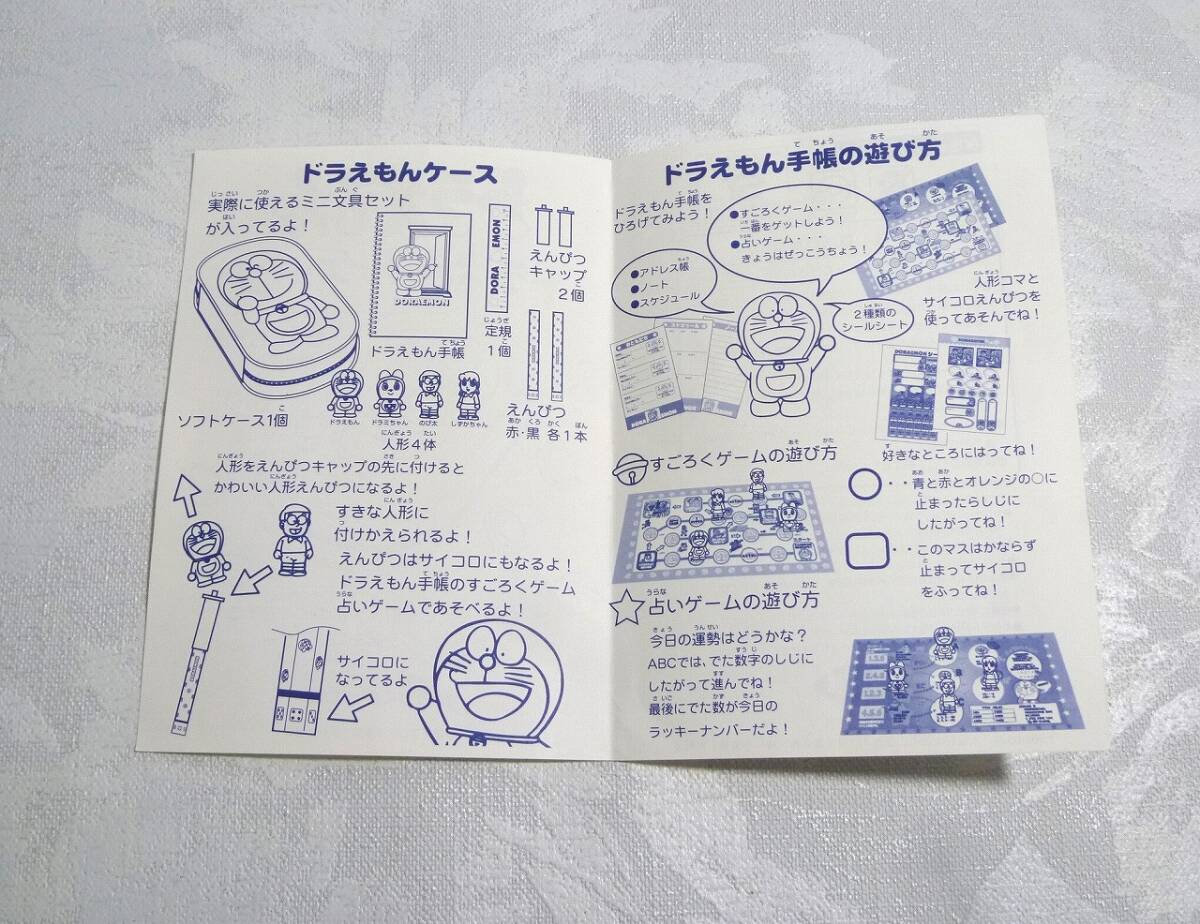 ドラえもんケース
実際に使えるミニ文具セット
が入ってるよ！
DORAEMON
ドラえもん手帳
DORA EMON
定規
1個
えんぴつ
キャップ
2個
ソフトケース1個
ドラえもん
ドラミちゃん
のび太
しずかちゃん
人形4体
えんぴつ
赤・黒 各1本
人形をえんぴつキャップの先に付けると
かわいい人形えんぴつになるよ！
すきな人形に
付けかえられるよ！
えんぴつはサイコロにもなるよ！
ドラえもん手帳のすごろくゲーム
占いゲームであそべるよ！
サイコロに
なってるよ
ドラえもん手帳の遊び方
ドラえもん手帳を
ひろげてみよう！
●すごろくゲーム・・・
一番をゲットしよう！
●占いゲーム・・・
きょうはぜっこうちょう！
●アドレス帳
●ノート
●スケジュール
人形コマと
サイコロえんぴつを
使ってあそんでね！
2種類の
シールシート
好きなところにはってね！
すごろくゲームの遊び方
・・青と赤とオレンジの○に
止まったらしじに
したがってね！
・・このマスはかならず
止まってサイコロ
をふってね！
占いゲームの遊び方
今日の運勢はどうかな？
ABCでは、でた数字のしじに
したがって進んでね！
最後にでた数が今日の
ラッキーナンバーだよ！